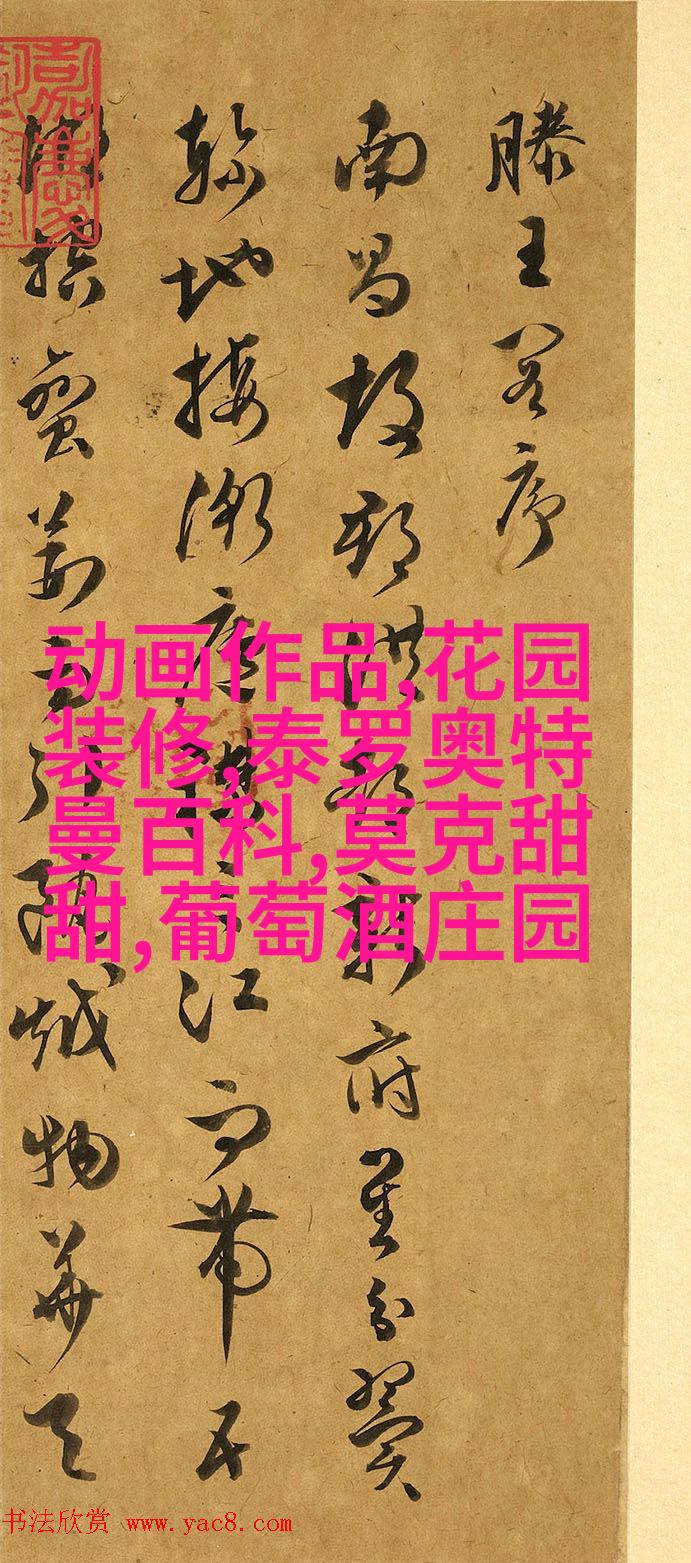 滕王閣序
南昌故郡洪都新府星分翼
軫地接衡廬襟三江而帶五
湖控蠻荊而引甌越物華天
动画作品,花园
装修,泰罗奥特
曼百科,莫克甜
甜,葡萄酒庄园
书法欣赏 www.yac8.com